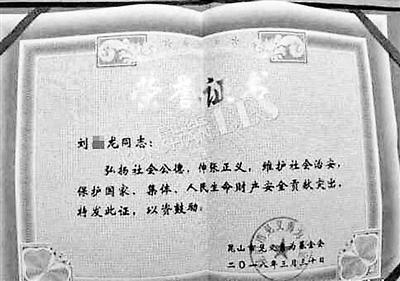 荣誉证书
刘 龙同志：
弘扬社会公德，伸张正义，维护社会治安，
保护国家、集体、人民生命财产安全贡献突出，
特发此证，以资鼓励。
昆山市见义勇为基金会
二〇一八年三月三十日